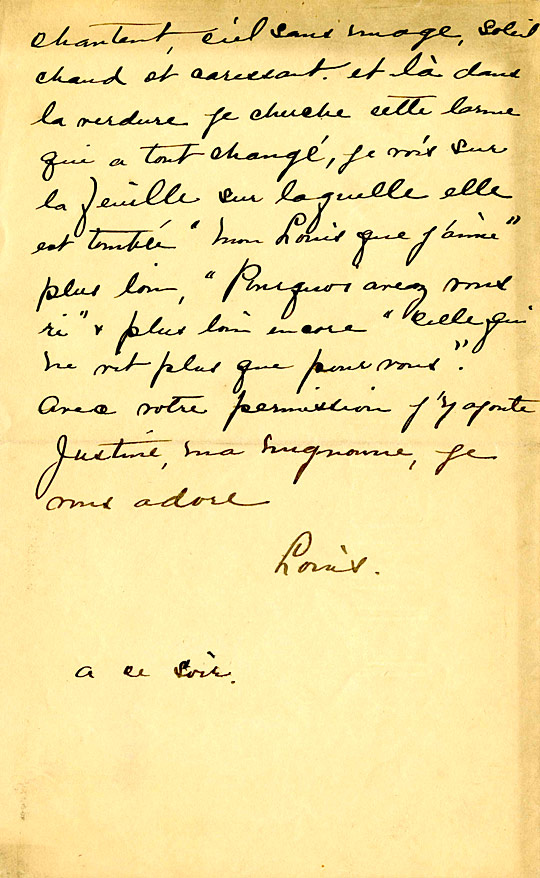 chantent, ciel sans nuage, soleil
chaud et caressant. et là dans
la verdure je cherche cette larme
qui a tout changé, je vois sur
la feuille sur laquelle elle
est tombée "mon Louis que j'aime"
plus loin, "Pourquoi avez vous
ri" & plus loin encore "celle qui
ne vit plus que pour vous".
Avec votre permission j'y ajoute
Justine, ma mignonne, je
vous adore
Louis.
a ce soir.